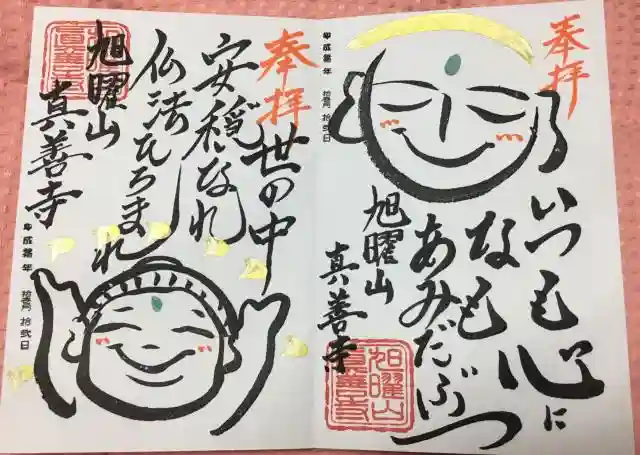 奉拝
いつも心に
なも
あみだぶつ
旭曜山
真善寺
旭曜山
真善寺
平成
年
拾壱月 拾弐日
奉拝
世の中
安穏なれ
仏法ひろまれ
旭曜山
真善寺
平成
年
拾壱月 拾弐日